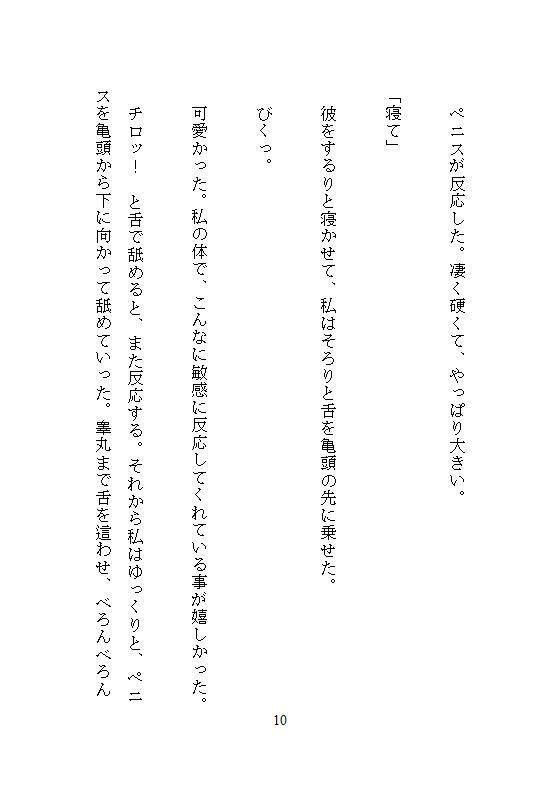 ペニスが反応した。凄く硬くて、やっぱり大きい。
「寝て」
彼をするりと寝かせて、私はそろりと舌を亀頭の先に乗せた。
びくっ。
可愛かった。私の体で、こんなに敏感に反応してくれている事が嬉しかった。
チロッ！　と舌で舐めると、また反応する。それから私はゆっくりと、ペニ
スを亀頭から下に向かって舐めていった。睾丸まで舌を這わせ、べろんべろん
10